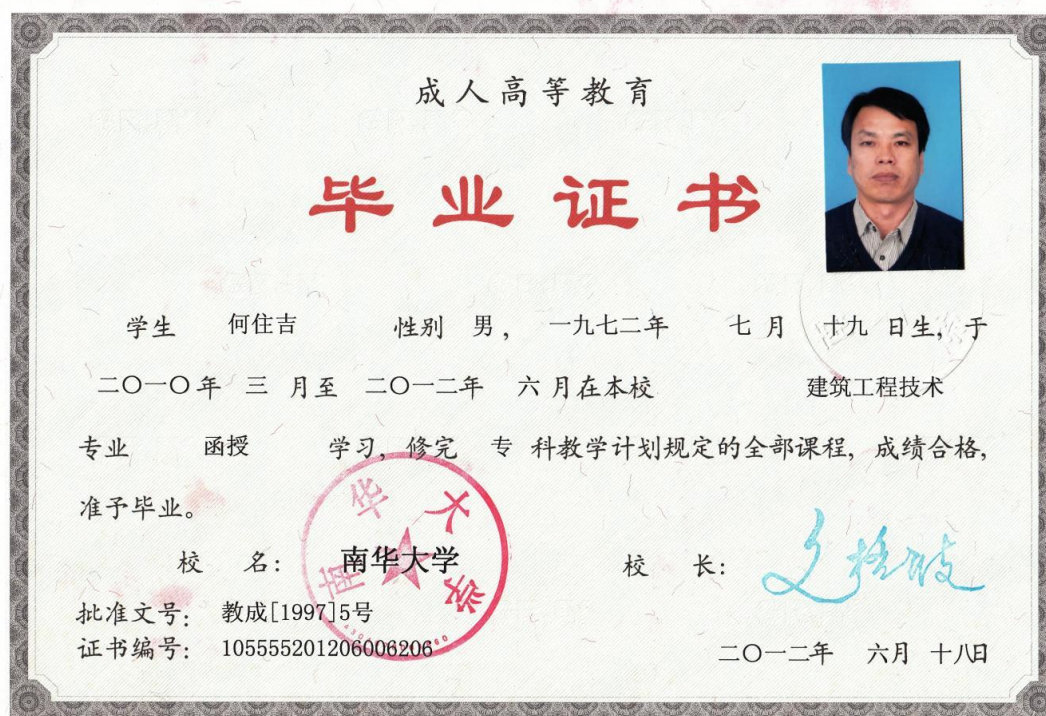 成人高等教育
毕业证书
学生 何住吉 性别 男, 一九七二年 七 月 十九 日生, 于
二〇一〇年 三 月至 二〇一二年 六 月在本校 建筑工程技术
专业 函授 学习, 修完 专 科教学计划规定的全部课程, 成绩合格,
准予毕业。
校 名: 南华大学 校 长:
南华大学
批准文号: 教成[1997]5号
证书编号: 105555201206006206
二〇一二年 六月 十八日